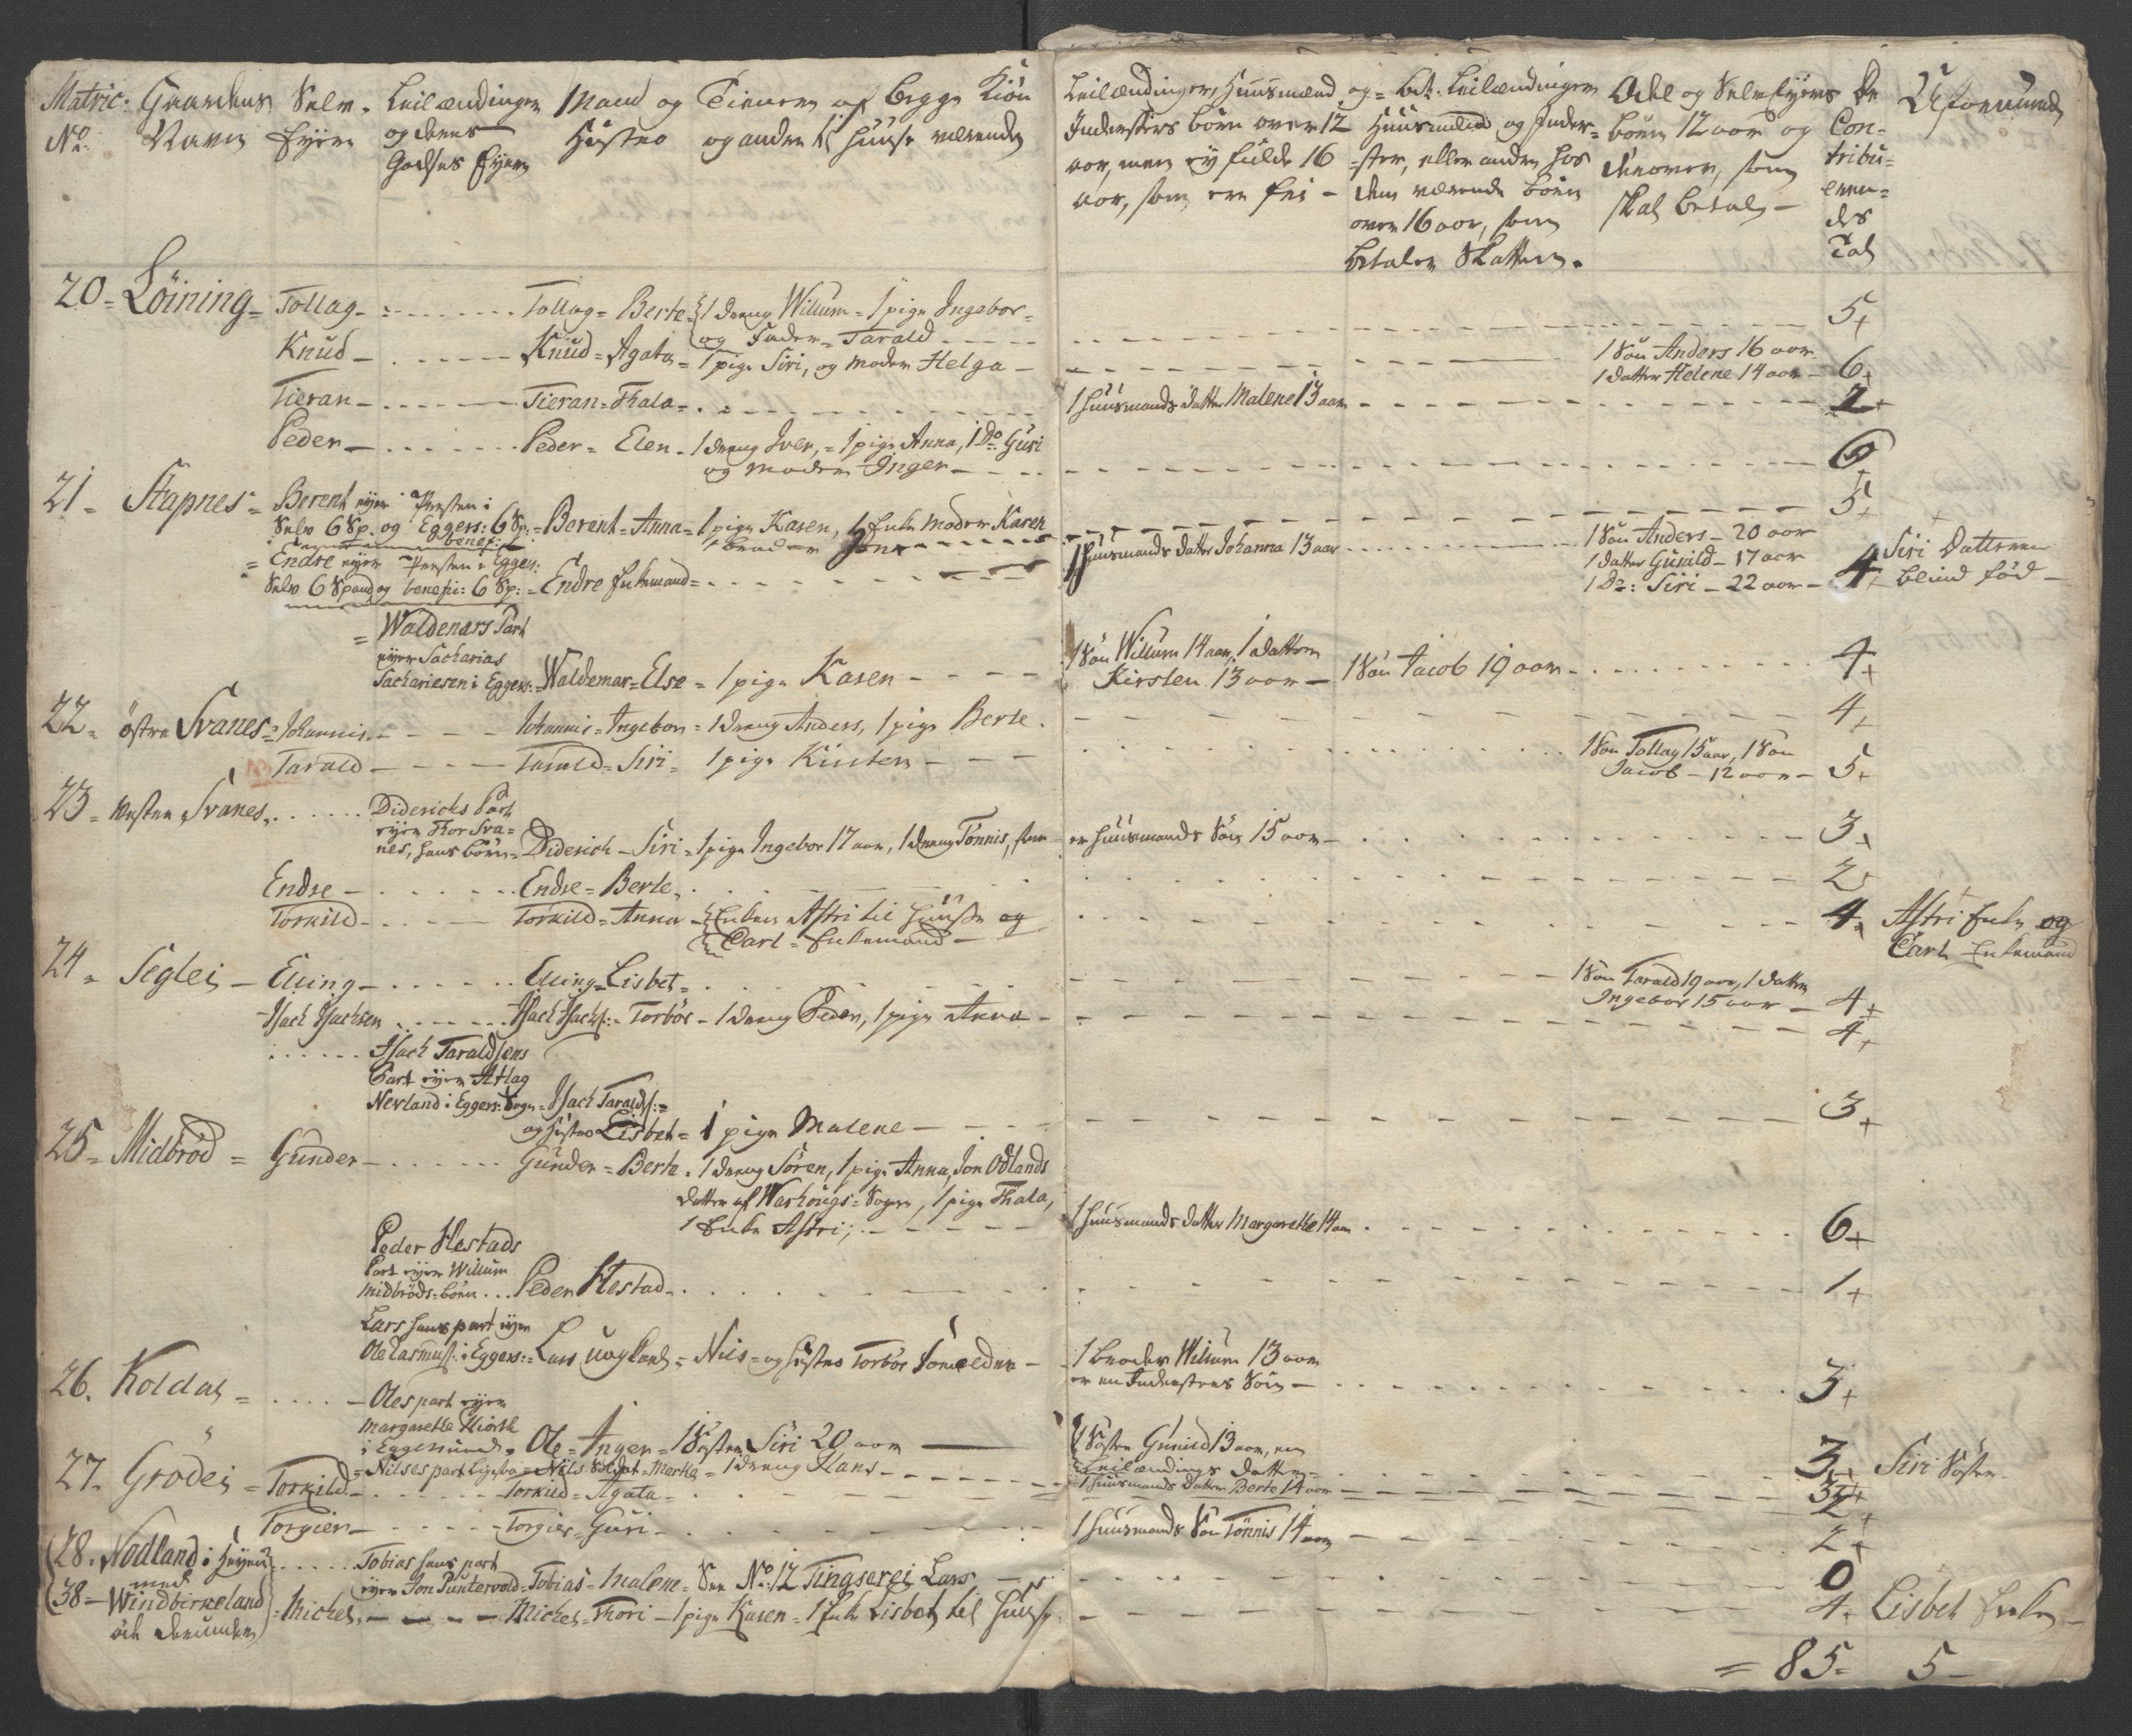 Matric: Gaardens Selv- Leilændinger Mand og Tienere af begge Kiön
No: Navn Eyere og deres Hustro og andre til Huuse værende
Godses Eyere
Leilændingers, Huusmænd og
Indersters börn over 12
aar, men ej fulde 16
aar, som ere fri -
Leilændingers
Huusmænd og Inder-
ster, eller andre hos
dem værende börn
over 16 aar, som
betaler Skatten.
Odel og Selveyeres
börn 12 aar og
derover, som
skal betale -
De
Con-
tribu-
eren-
des
Tal
Uformuende
20 - Löining - Tollag - Tollag = Berte - 1 dreng Willum = 1 pige Ingebor - 5
og Fader - Tarald
Knud - Knud = Agata = 1 pige Siri, og moder Helga - 1 Sön Anders 16 aar
1 datter Helene 14 aar - 6
Tieran - Tieran = Thala - 1 huusmands datter Malene 13 aar - 2
Peder - Peder = Elen - 1 dreng Iver, = 1 pige Anna, 1 Do Guri
og moder Inger - 6
21 - Stapnes = Berent eyer Præsten i
Selv 6 Sp. og Eggers: 6 Sp: = Berent = Anna = 1 pige Karen, 1 Enke moder Karen - 5
benef:
= Endre eyer Præsten i Eggers:
Selv 6 Spand og benefi: 6 Sp: = Endre Enkemand = 1 huusmands datter Johanna 13 aar
1 Sön Anders - 20 aar
1 datter Gunild - 17 aar
1 Do: Siri - 22 aar - 4 Siri Datteren
blind föd -
= Waldemars Part
eyer Sacharias
Sachariesen i Eggers: = Waldemar = Else = 1 pige Karen - 1 Sön Willum 14 aar, 1 datter
Kirsten 13 aar - 1 Sön Jacob 19 aar - 4
22 - östre Svanes = Johannis - Johannis = Ingebor = 1 dreng Anders, 1 pige Berte. 4
Tarald - Tarald = Siri = 1 pige Kirsten - 1 Sön Tollag 15 aar, 1 Sön
Jacob - 12 aar - 5
23 - Vestre Svanes - Diderichs Part
eyer Thor Sva=
nes, hans börn = Diderich - Siri = 1 pige Ingebor 17 aar, 1 dreng Tönnis, som er huusmands Sön 15 aar - 3
Endre - Endre = Berte - 2
Torkild - Torkild = Anna - Enken Astri til Huuse og
Carl = Enkemand - 4 Astri Enke og
Carl Enkemand
24 - Seglei - Elling - Elling = Lisbet = 1 Sön Tarald 19 aar, 1 datter
Ingebor 15 aar - 4
Isach Isachsen - Isach Isachs: = Torbör - 1 dreng Peder, 1 pige Anna - 4
Isach Taraldsens
Part eyer Atlag
Nevland i Eggers: Sogn = Isach Taralds: =
og Hustro Lisbet = 1 pige Malene - 3
25 - Midbröd = Gunder - Gunder = Berte - 1 dreng Sören, 1 pige Anna, Jon Odlands
datter af Warhougs = Sogn, 1 pige Thala,
1 Enke Astri; - 1 huusmands datter Margarethe 14 aar - 6
Peder Hestads
Part eyer Willum
Midbröds = börn - Peder Hestad - 1
Lars hans part eyer
Ole Rasmus: i Eggers: = Lars ungkarl = Nils = og Hustro Torbör Forældre - 1 broder Willum 13 aar
er en Inderstes Sön - 3
26. Koldal = Oles part eyer
Margarethe Hiorth
i Eggersund - Ole = Inger = 1 Söster Siri 20 aar - 1 Söster Gunild 13 aar, en
Leilændings datter = 3 Siri Söster
= Nilses part = Nils Soldat = Marthe = 1 dreng Hans - 1 huusmands datter Berte 14 aar - 3
27. Grödei = Torkild - Torkild = Agata = 2
Torgier - Torgier = Guri - 1 huusmands Sön Tönnis 14 aar - 2
28. Nodland i - Tobias hans part
eyer Jon Puntervold = Tobias = Malene = See No: 12 Tingsarei Lars - 0
med
38 - Windbirkeland = Michel - Michel = Thori - 1 pige Karen = 1 Enke Lisbet til Huuse - 4 Lisbet Enke -
öde derunder
= 85 = 5 -